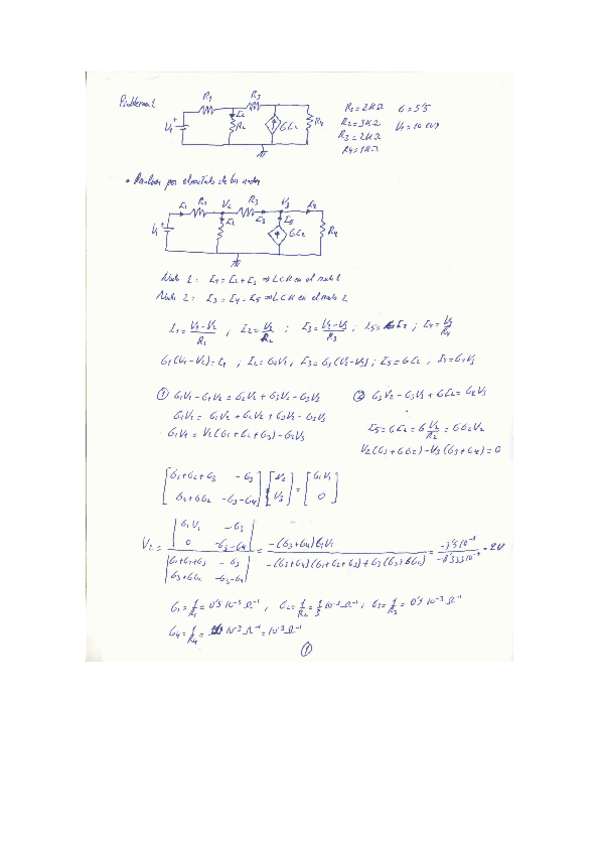 Problema 1
R1 R3
I2
V1 + R2 GI2 R4
R1=2KΩ G=5'5
R2=3KΩ V1=10(V)
R3=2KΩ
R4=1KΩ
• Resolver por el método de los nudos
I1 R1 V2 R3 V3 I4
I2 I3 I5
V1 R2 GI2 R4
Nudo 1: I1=I2+I3 ⇒ LCK en el nudo 1
Nudo 2: I3=I4-I5 ⇒ LCK en el nudo 2
I1=(V1-V2)/R1 ; I2=V2/R2 ; I3=(V2-V3)/R3 ; I5=GI2 ; I4=V3/R4
G1(V1-V2)=I1 ; I2=G2V2 , I3=G3(V2-V3) ; I5=GI2 , I4=G4V3
① G1V1-G1V2=G2V2+G3V2-G3V3 ② G3V2-G3V3+GI2=G4V3
G1V1=G1V2+G2V2+G3V2-G3V3
I5=GI2=G V2/R2=GG2V2
G1V1=V2(G1+G2+G3)-G3V3
V2(G3+GG2)-V3(G3+G4)=0
[G1+G2+G3 -G3] [V2] = [G1V1]
[G3+GG2 -G3-G4] [V3] [0]
V2= |G1V1 -G3; 0 -G3-G4| / |G1+G2+G3 -G3; G3+GG2 -G3-G4| = -(G3+G4)G1V1 / -(G3+G4)(G1+G2+G3)+G3(G3+GG2) =
G1=1/R1=0'5 10^-3 Ω^-1 , G2=1/R2=1/3 10^-3 Ω^-1 ; G3=1/R3=0'5 10^-3 Ω^-1
G4=1/R4= 10^-3 Ω^-1=10^-3 Ω^-1
①